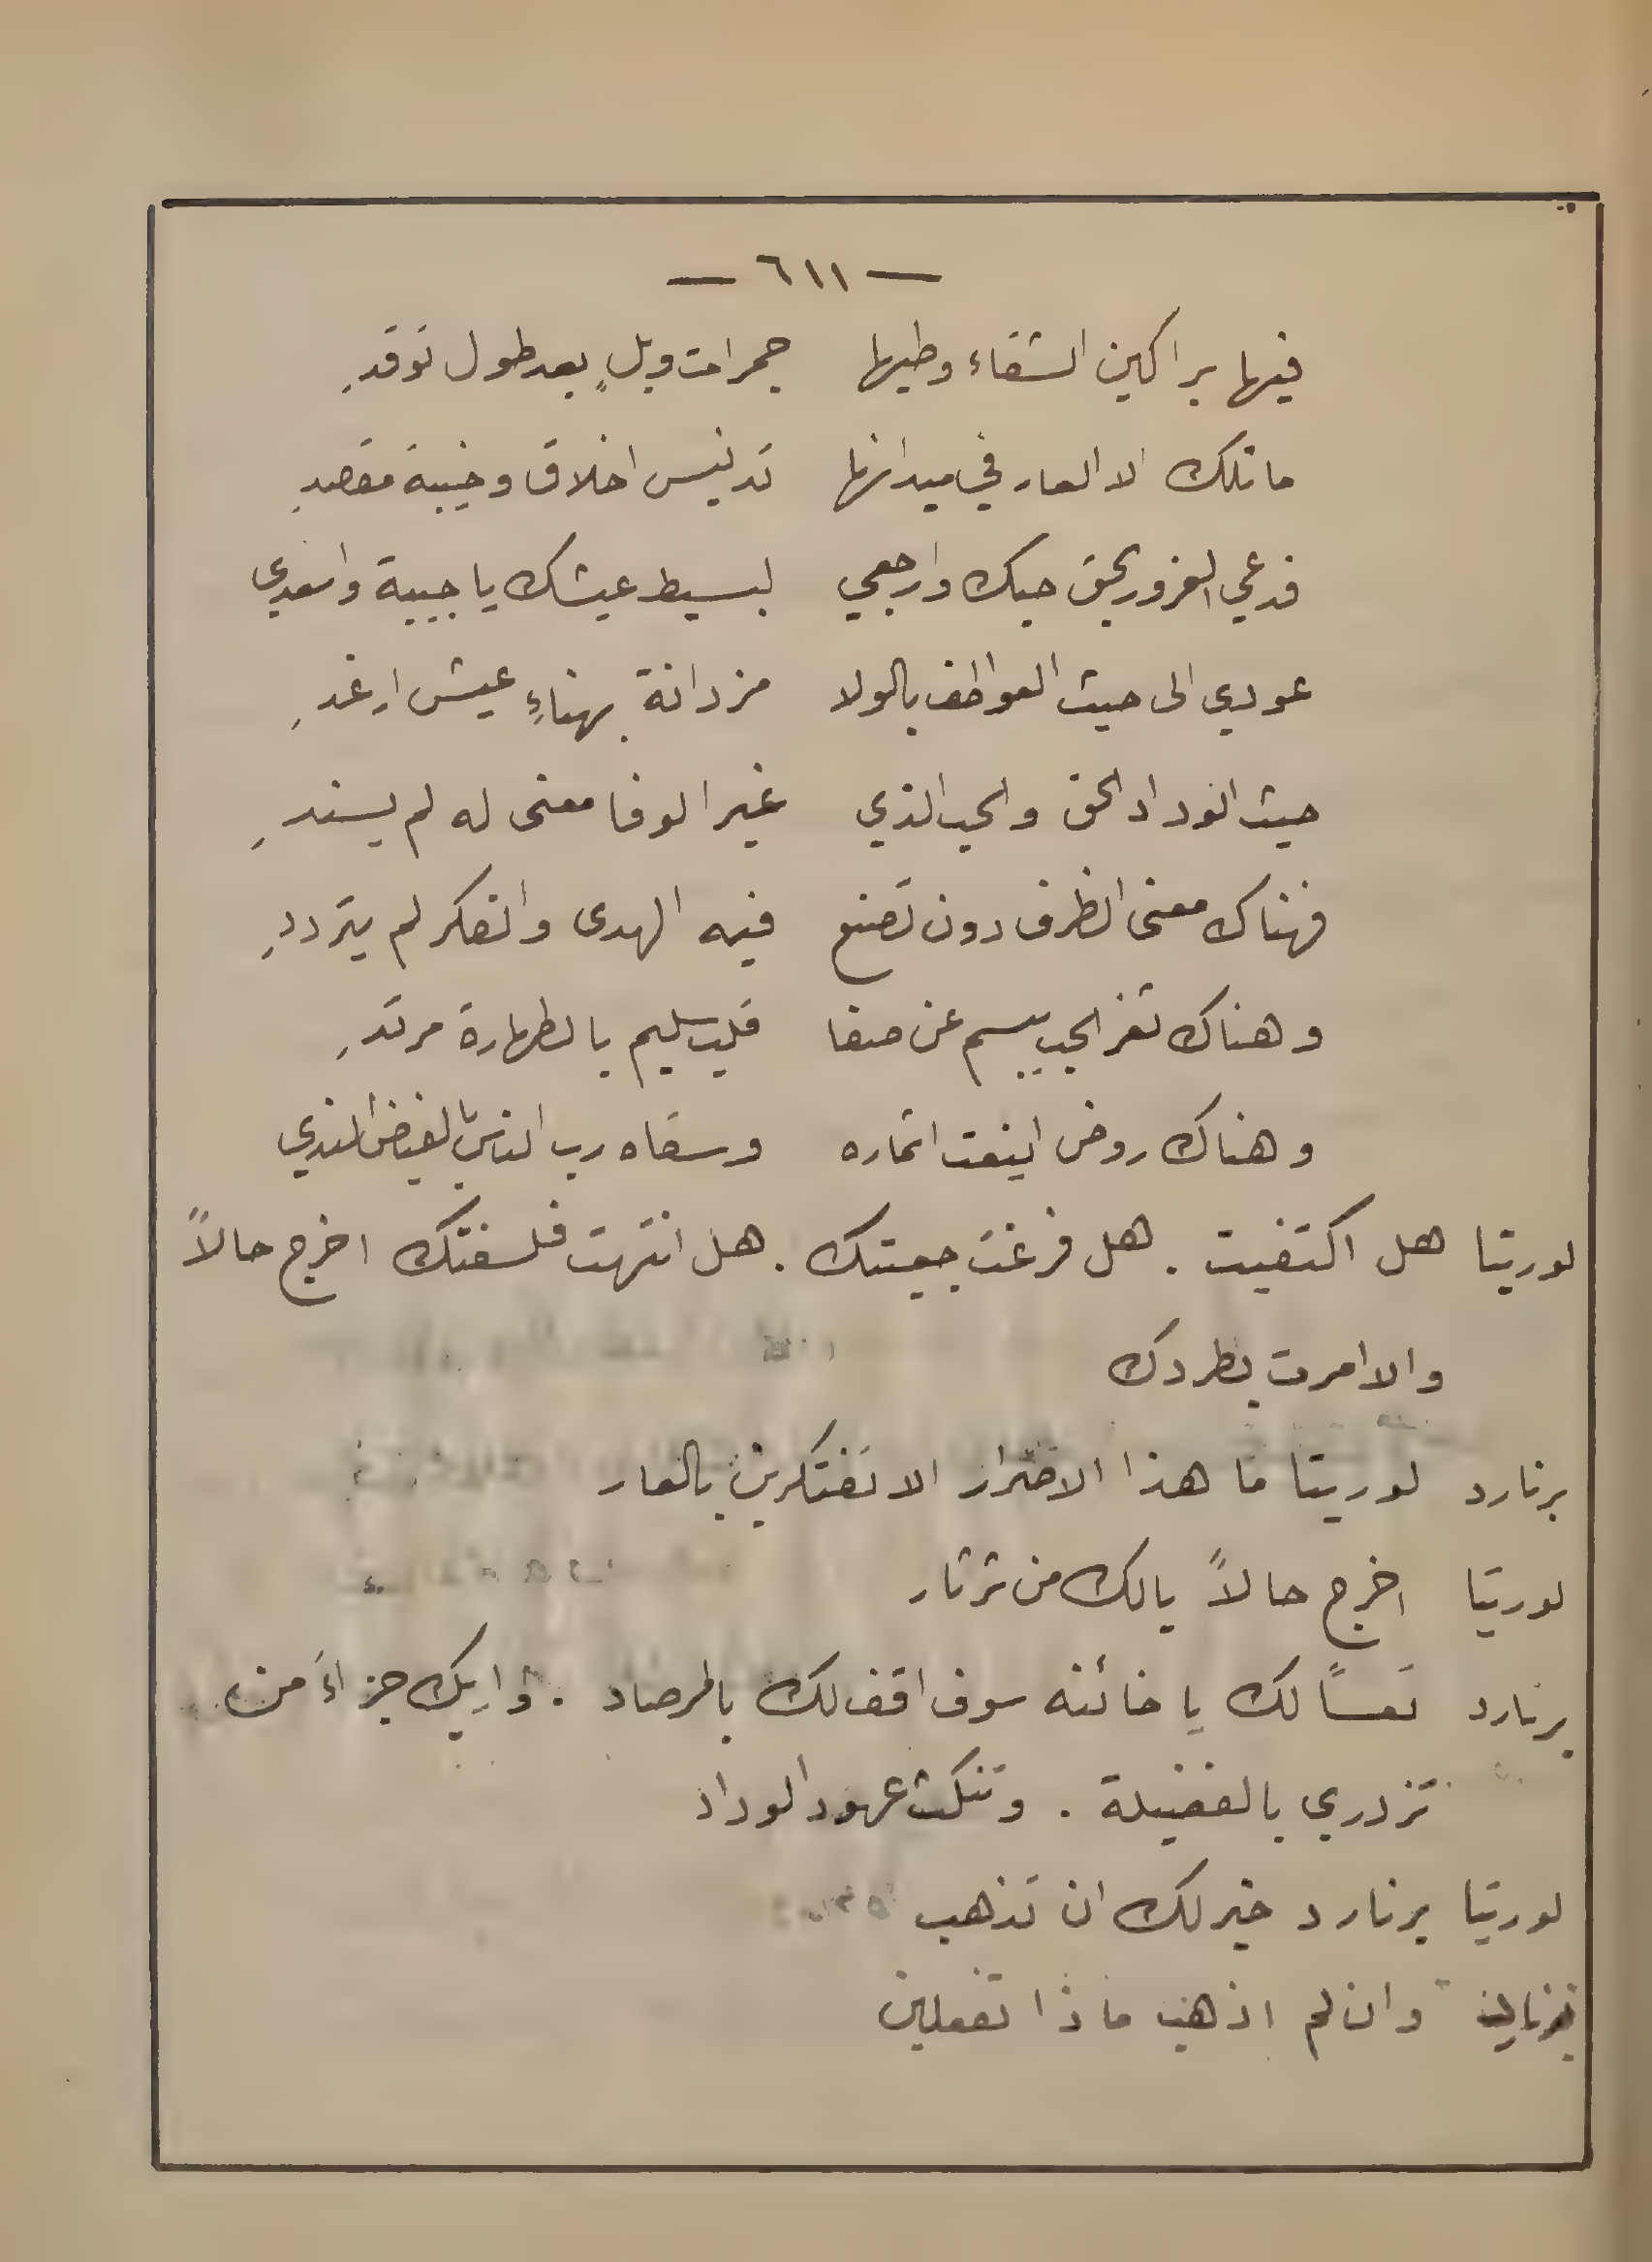 — ٦١١ —
فيها براكين الشقاء وطيها جمرات ويلٍ بعد طول توقدِ
ما تلك الا العار في ميدانها تدنيس اخلاق وخيبة مقصدِ
فدعي الغرور بحق حبك وارجعي لبسيط عيشك يا حبيبة واسعدي
عودي الى حيث العواطف بالولا مزدانة بهناءِ عيش ارغدِ
حيث الوداد الحق والحب الذي غير الوفا معنى له لم يسندِ
فهناك معنى الظرف دون تصنع فيه الهدى والفكر لم يترددِ
وهناك ثغر الحب يبسم عن صفا قلب سليم بالطهارة مرتدِ
وهناك روض اينعت اثماره وسقاه رب الناس بالفيض الندي
لوريتا هل اكتفيت . هل فرغت جعبتك . هل انتهت فلسفتك اخرج حالاً
والا امرت بطردك
برنارد لوريتا ما هذا الاصرار الا تفتكرين بالعار
لوريتا اخرج حالاً يالك من ثرثار
برنارد تعساً لك يا خائنه سوف اقف لك بالمرصاد . واريك جزاءَ من
تزدري بالفضيلة . وتنكث عهود الوداد
لوريتا برنارد خير لك ان تذهب
وان لم اذهب ماذا تفعلين